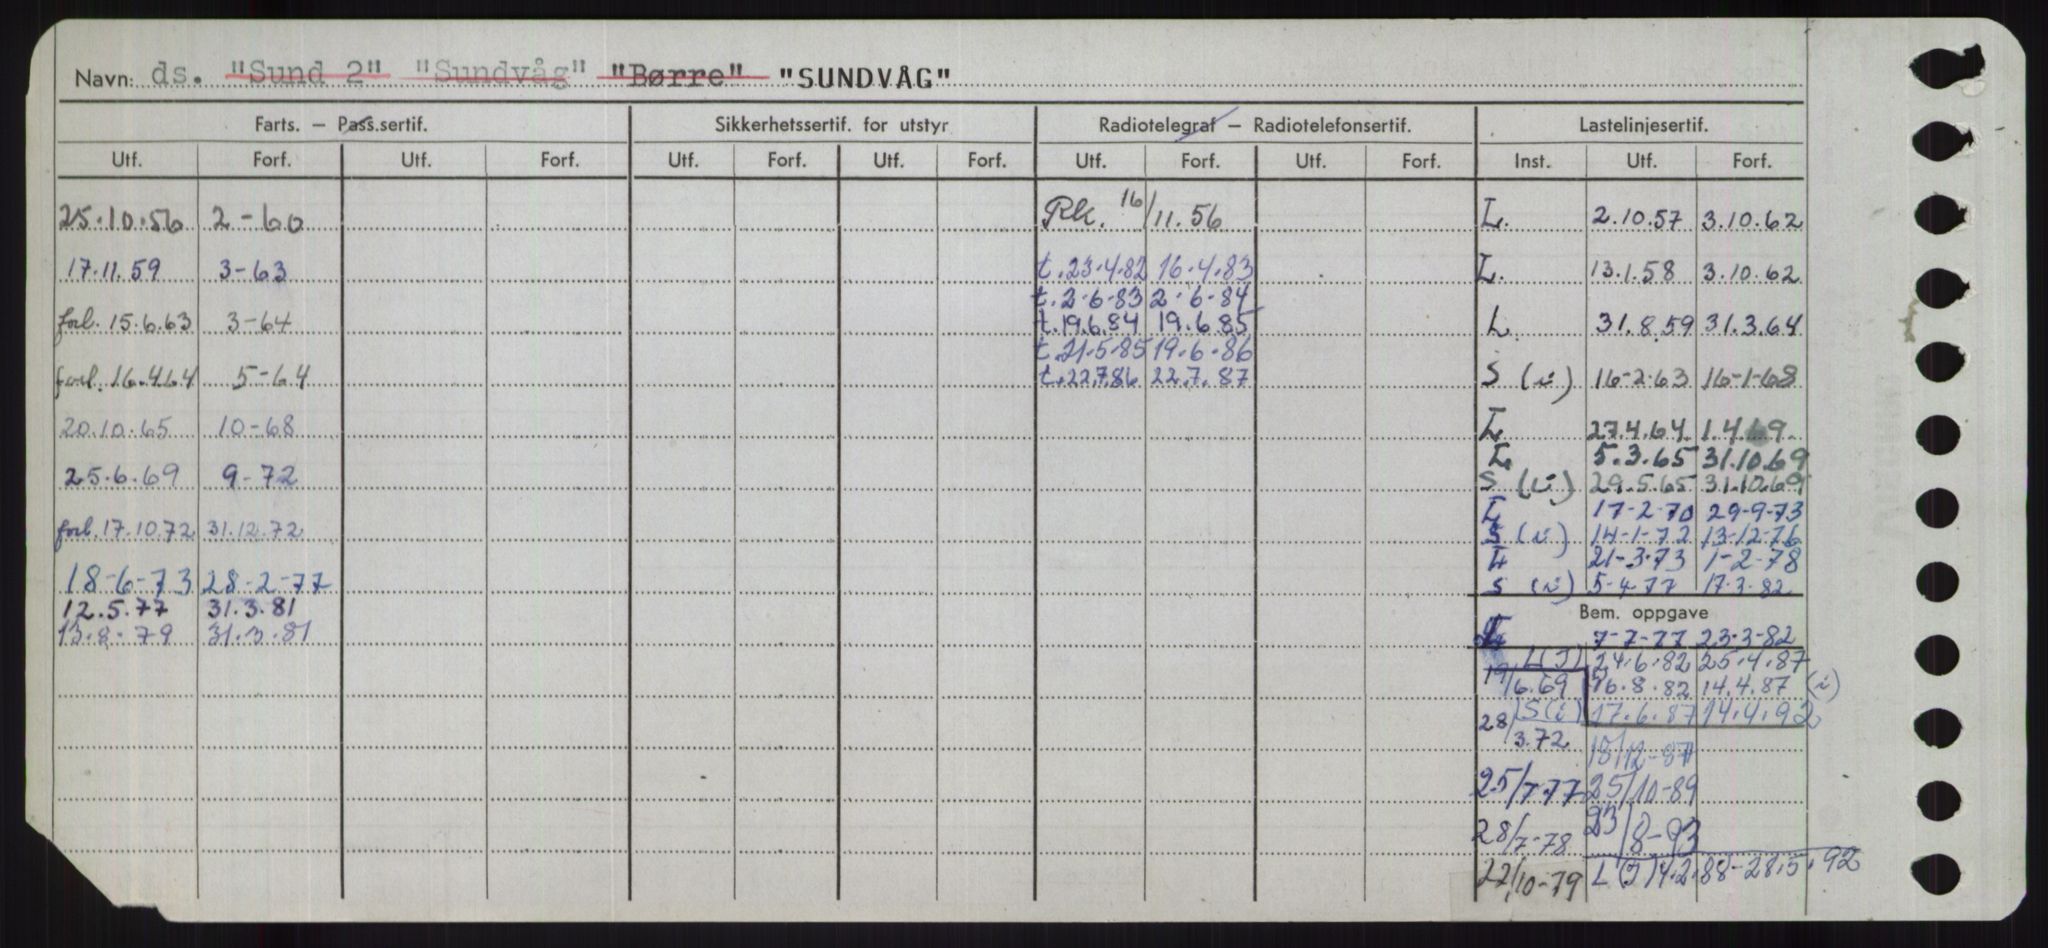 Navn: ds. "Sund 2" "Sundvåg" "Børre" "SUNDVÅG"
Farts. — Pass.sertif. Sikkerhetssertif. for utstyr Radiotelegraf — Radiotelefonsertif. Lastelinjesertif.
Utf. Forf. Utf. Forf. Utf. Forf. Utf. Forf. Utf. Forf. Utf. Forf. Inst. Utf. Forf.
25.10.56 2-60 Rk. 16/11.56 L. 2.10.57 3.10.62
17.11.59 3-63 t.23.4.82 16.4.83 L. 13.1.58 3.10.62
t.2-6-83 2-6-84
forl. 15.6.63 3-64 t.19.6.84 19.6.85 L 31.8.59 31.3.64
t.21-5-85 19-6-86
forl. 16.4.64 5-64 t.22.7.86 22.7.87 S (i) 16-2-63 16-1-68
20.10.65 10-68 L 27.4.64 1.4.69
L 5.3.65 31.10.69
25.6.69 9-72 S (i) 29.5.65 31.10.69
L 17-2-70 29-9-73
forl. 17.10.72 31.12.72 S (i) 14-1-72 13-12-76
L 21-3-73 1-2-78
18-6-73 28-2-77 S (i) 5-4-77 17-3-82
12.5.77 31.3.81 Bem. oppgave
13-8-79 31.3.81 7-7-77 23-3-82
L(I) 24.6.82 25.4.87
19/6.69 16.8.82 14.4.87 (i)
S(i) 17.6.87 14.4.92
28/3.72
18/12-87
25/7.77 25/10-89
28/7-78 23/8-93
22/10-79 L(I) 4.2.88-28.5.92